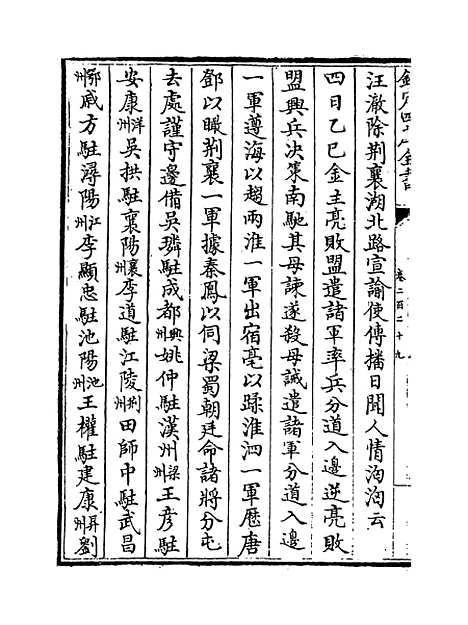 欽定四庫全書
卷二百二十九
汪澈除荆襄湖北路宣諭使傳播日聞人情洶洶云
四日乙巳金主亮敗盟遣諸軍率兵分道入邊逆亮敗
盟興兵決䇿南馳其母諫遂殺母誡遣諸軍分道入邊
一軍遵海以趨兩淮一軍出宿亳以蹂淮泗一軍歴唐
鄧以瞰荆襄一軍據秦鳳以伺梁蜀朝廷命諸將分屯
去處謹守邊備吳璘駐成都興州姚仲駐漢州梁州王彦駐
安康洋州吳拱駐襄陽襄州李道駐江陵荆州田師中駐武昌
鄂州戚方駐潯陽江州李顯忠駐池陽池州王權駐建康昇州劉